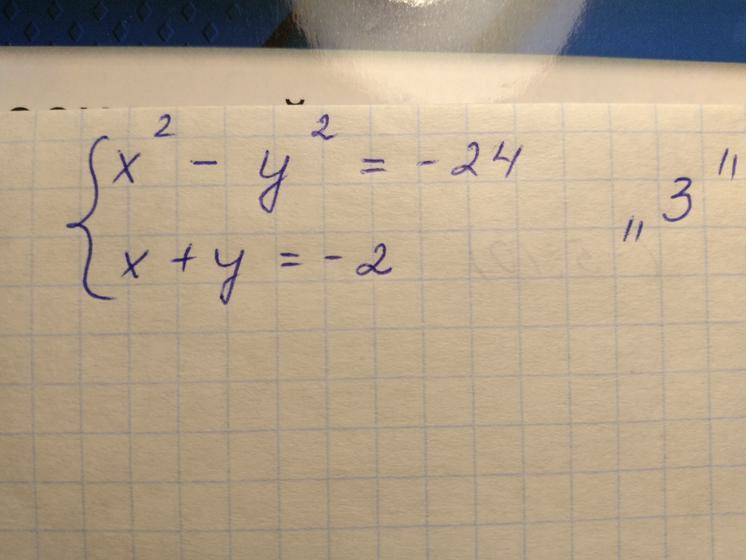 x² - y² = -24
x + y = -2
„3"